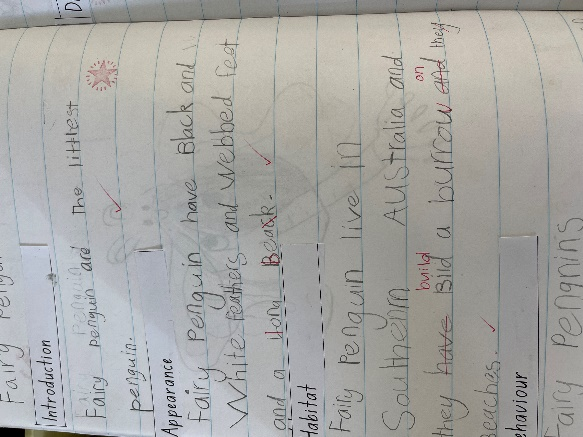 Fairy Penguin
Introduction
Fairy penguin are The littlest
penguin.
Appearance
Fairy penguin have Black and
White feathers and webbed feet
and a long Beack.
Habitat
Fairy Penguin live in
Southern Australia and
they have build Bild a burrow and on they
beaches.
Behaviour
Fairy Pengnins